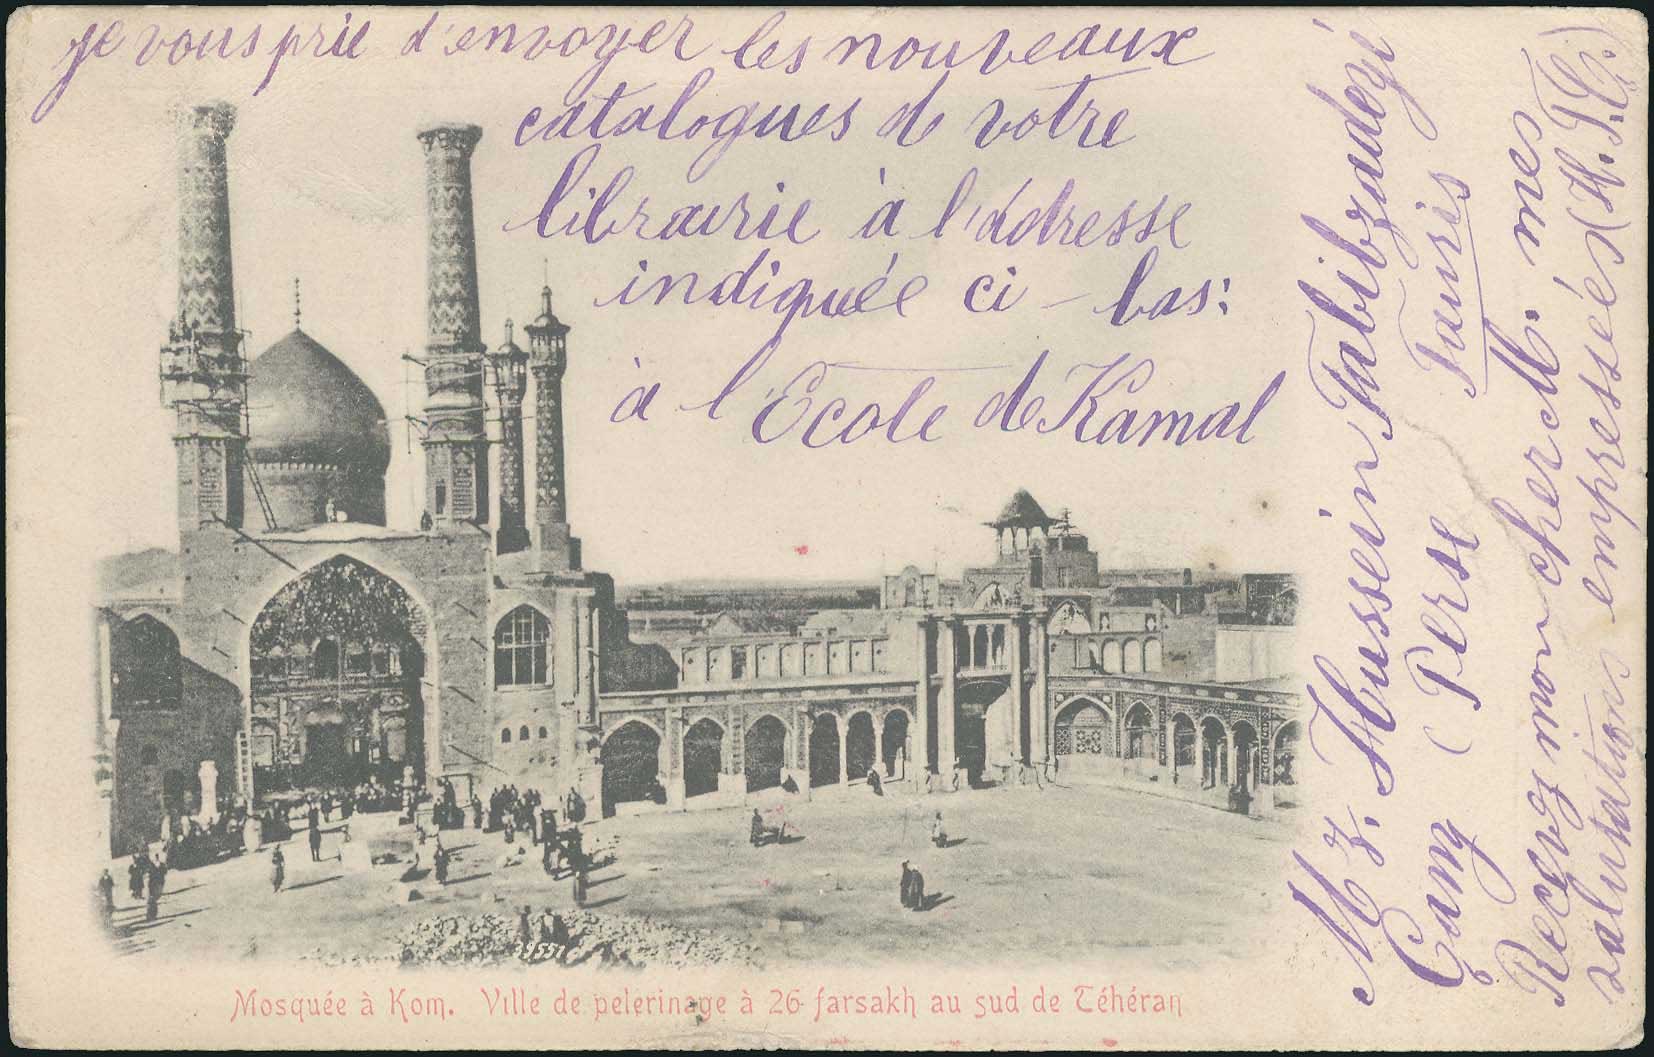 je vous prie d'envoyer les nouveaux
catalogues de votre
librairie à l'adresse
indiquée ci-bas:
à l'Ecole de Kamal
Hussein Tabibzadegé
(Perse Tauris
Recevez mon cher M. mes
salutations empressées (H.T.G.)
39551
Mosquée à Kom. Ville de pelerinage à 26 farsakh au sud de Téhéran